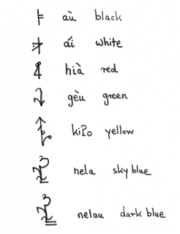 aù black
áí white
hià red
gèu green
kiʔo yellow
nela sky blue
nelau dark blue